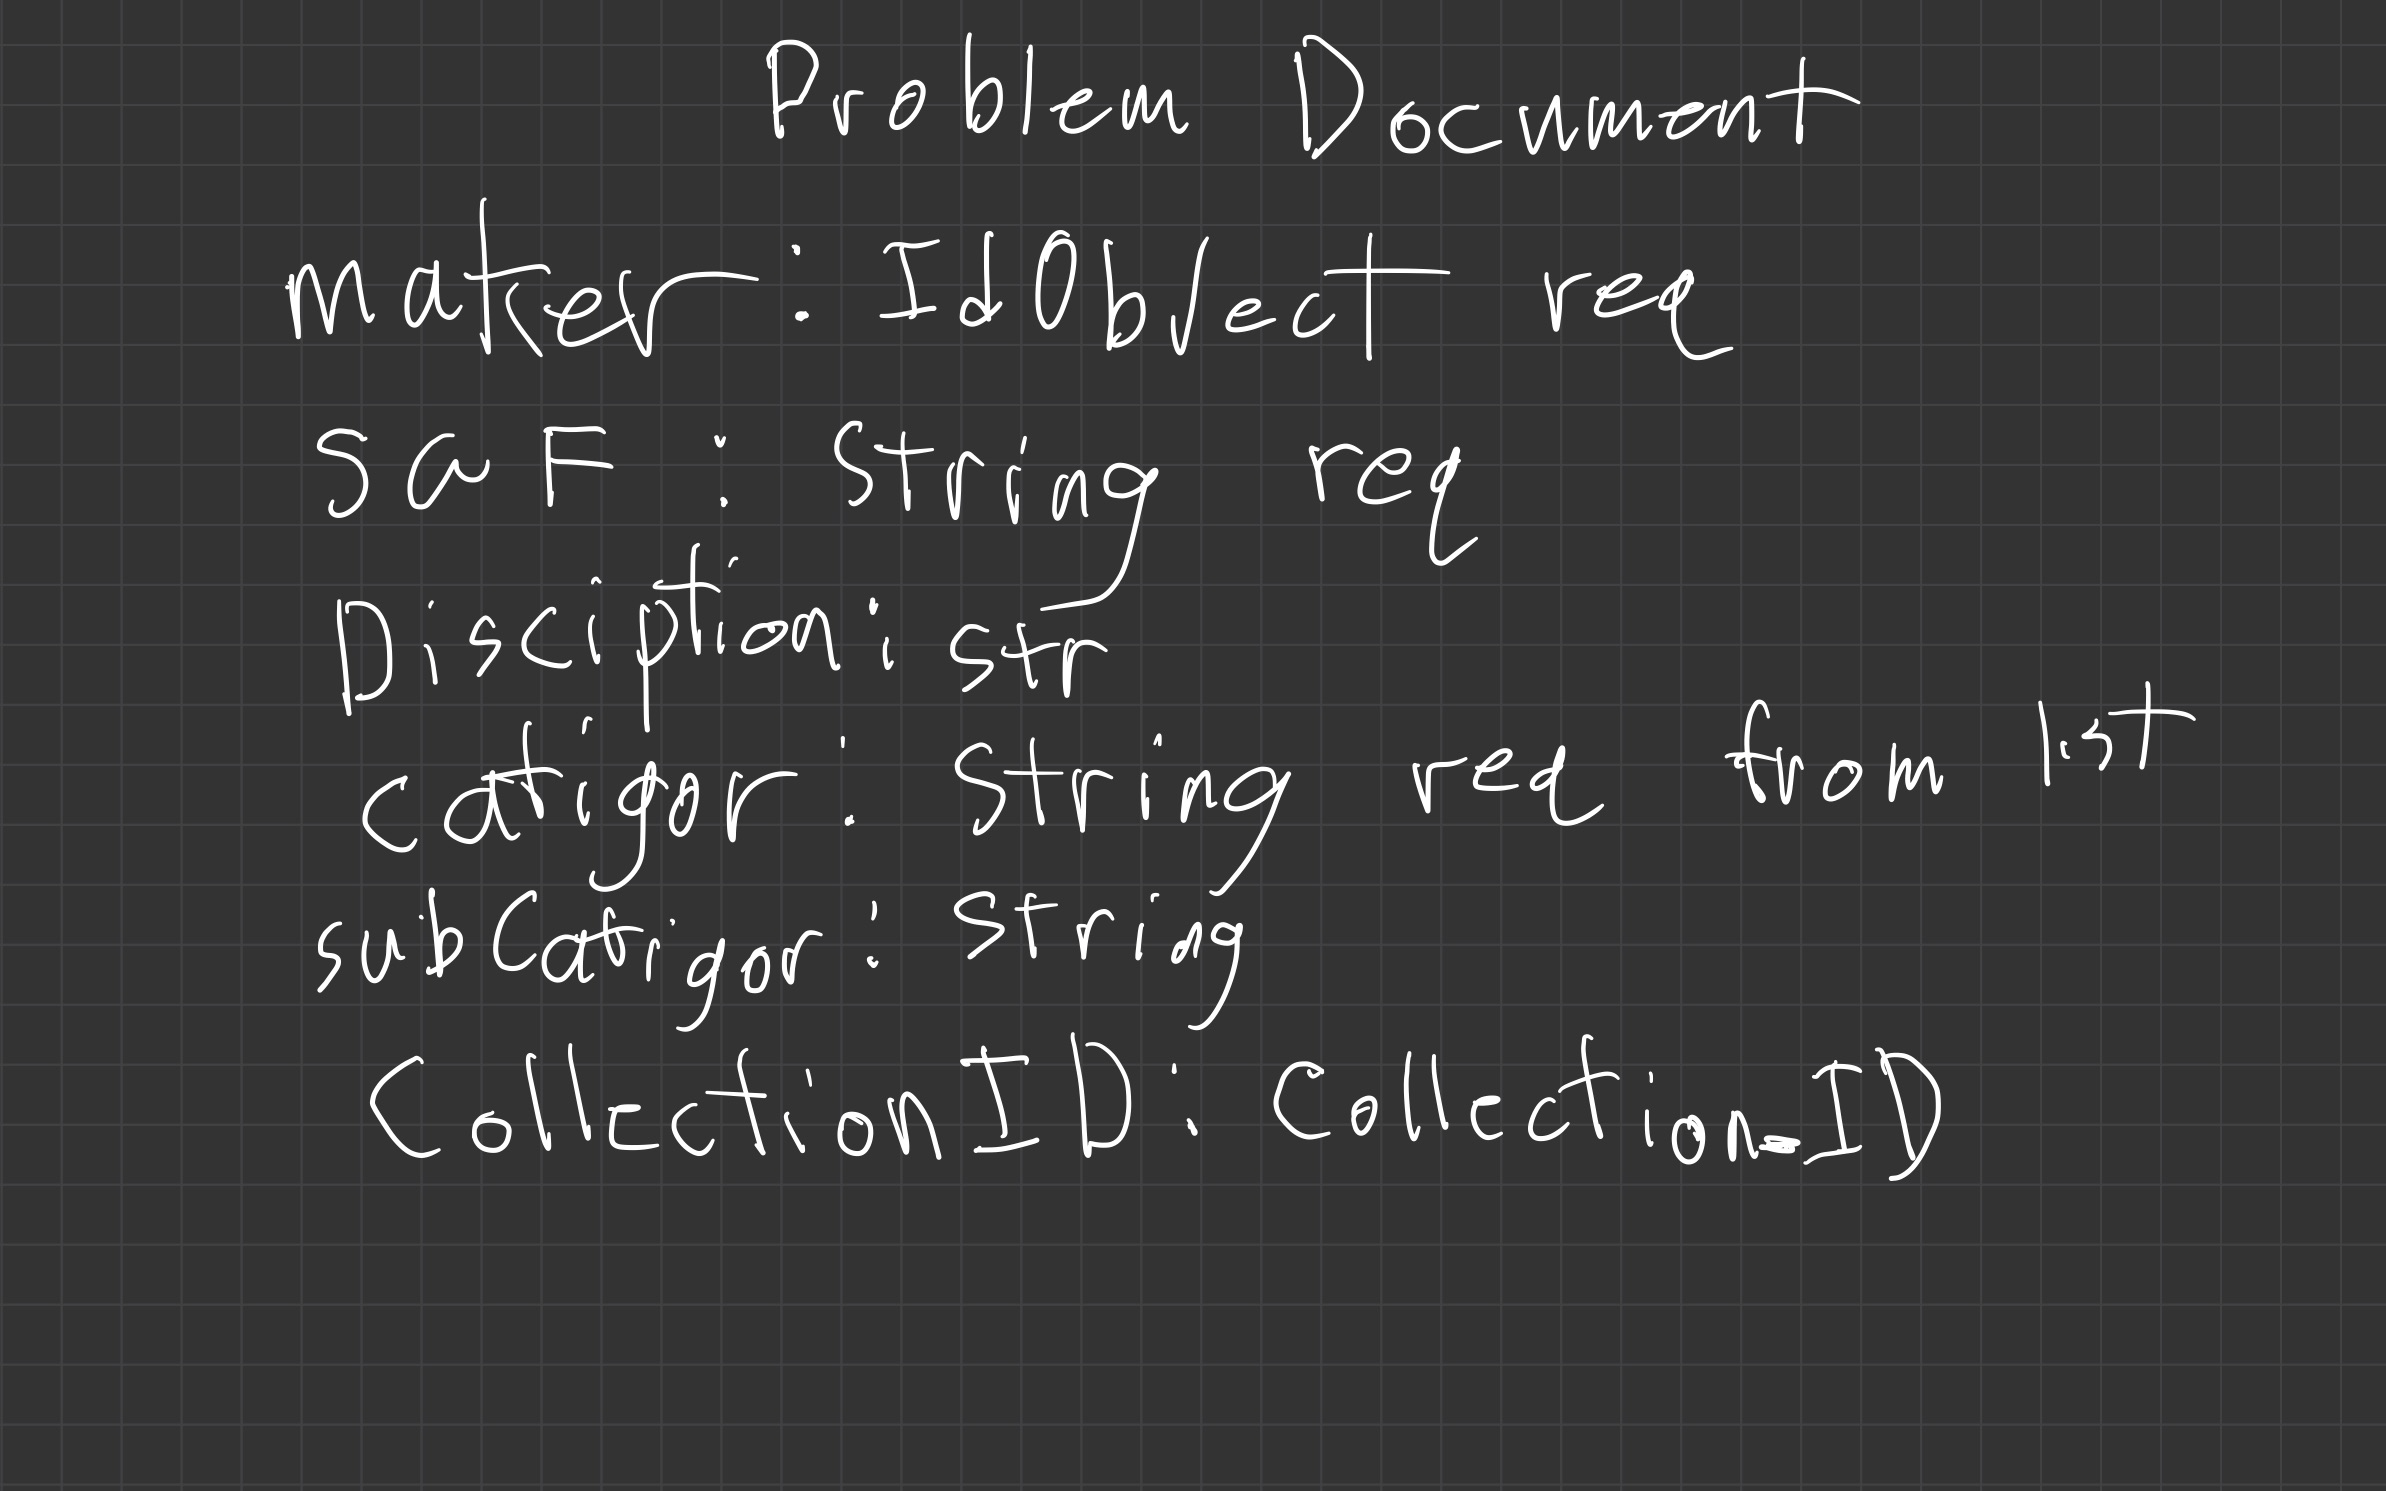 Problem Document
maker : IdObject req
SaF : String req
Disciption : str
catigor : String req from list
subCatigor : String
CollectionID : Collection_ID